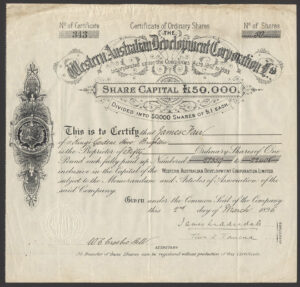 Nº of Certificate Certificate of Ordinary Shares Nº of Shares
343 THE 50
Western Australian Development Corporation Ltd
Incorporated under the Companies Acts 1862 to 1893
SHARE CAPITAL £150,000,
DIVIDED INTO 150000 SHARES OF £1 EACH.
This is to Certify that James Fair
of King
is the Proprietor of Fifty Ordinary Shares of One
Pound each fully paid up Numbered to
inclusive in the Capital of the WESTERN AUSTRALIAN DEVELOPMENT CORPORATION LIMITED
subject to the Memorandum and Articles of Association of the
said Company.
Given under the Common Seal of the Company
this 2nd day of March 1896
SECRETARY
No Transfer of these Shares can be registered without production of this Certificate.